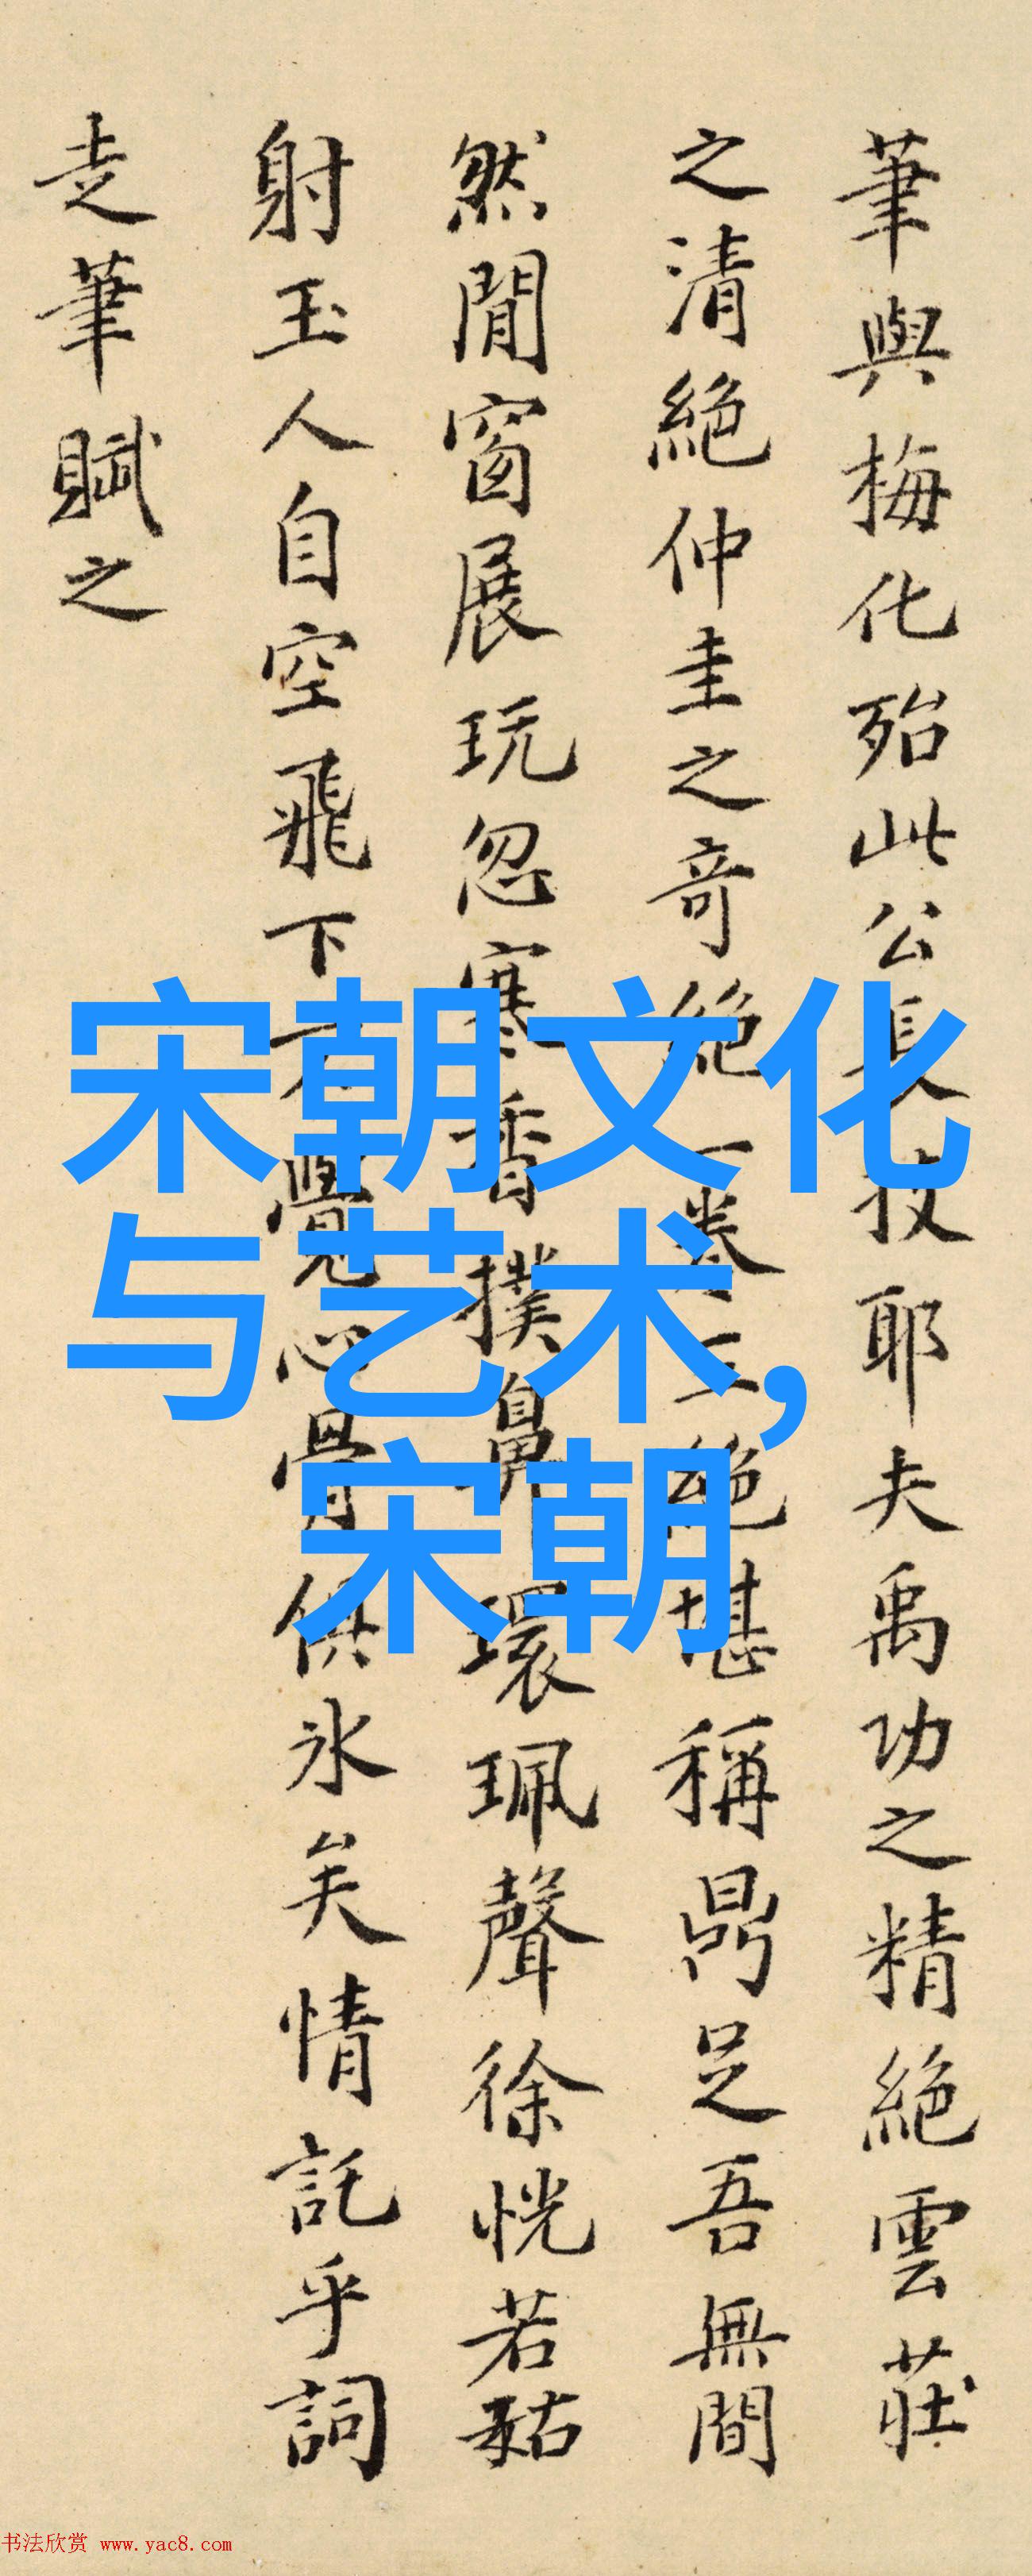 筆與梅化殆此公長技耶夫禹功之精絕雲莊
之清絕仲圭之奇絕一卷三絕堪稱鼎足吾無間
然閒窗展玩忽寒香撲鼻環珮聲徐恍若菇
射玉人自空飛下不覺心骨俱冰矣情託乎詞
走筆賦之
宋朝文化
与艺术,
宋朝
书法欣赏 www.yac8.com